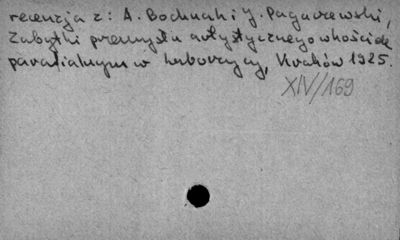 recenzja z: A. Bochnak i J. Pagaczewski,
Zabytki przemysłu artystycznego w kościele
parafialnym w Luborzycy, Kraków 1925.
XIV/169